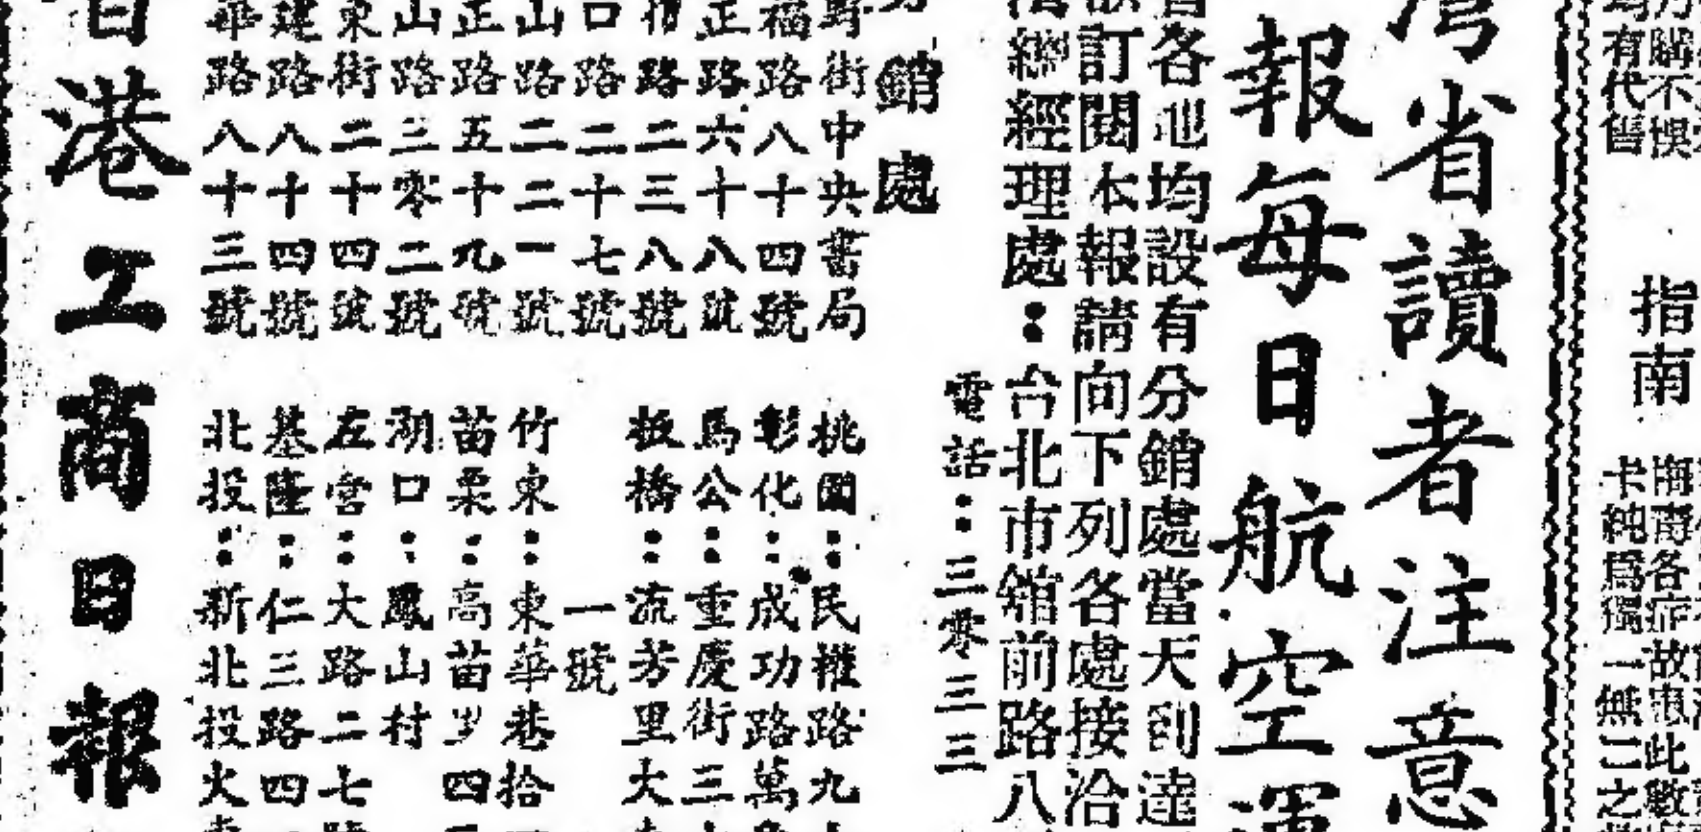 有代售
購不悞
指南
卡純爲獨一無二之
各症故惠此
灣省讀者注意
報每日航空運
各地均設有分銷處當天到達
訂閱本報請向下列各處接洽
總經理處：台北市舘前路八
電話：三零三三
銷處
街中央書局
福路八十四號
正路六十八號
路二三八號
口路二十七號
山路二二一號
正路五十九號
山路三零二號
東街二十四號
建路八十四號
華路八十三號
桃園：民權路九
彰化：成功路萬
馬公：重慶街三
板橋：流芳里大
一號
竹東：東華巷拾
苗栗：高苗岁四
湖口：鳳山村
左營：大路二七
基隆：仁三路四
北投：新北投火
香港工商日報